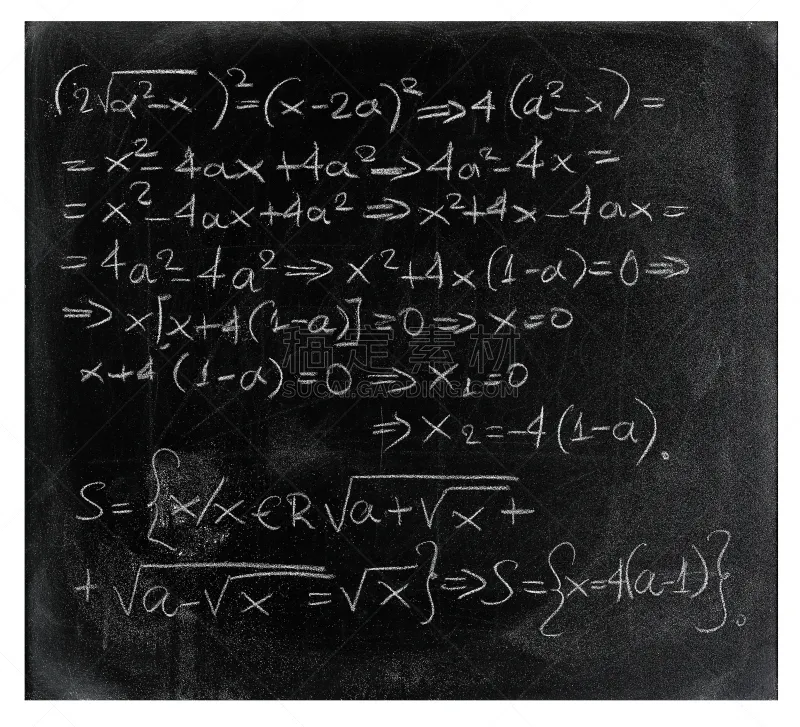 (2√(a²-x))²=(x-2a)²⇒4(a²-x)=
=x²-4ax+4a²⇒4a²-4x=
=x²-4ax+4a²⇒x²+4x-4ax=
=4a²-4a²⇒x²+4x(1-a)=0⇒
⇒x[x+4(1-a)]=0⇒x=0
x+4(1-a)=0⇒x₁=0
⇒x₂=-4(1-a).
S={x/x∈R√(a+√x)+
+√(a-√x)=√x}⇒S={x=4(a-1)}.
搞定素材
SUCAI.GAODING.COM